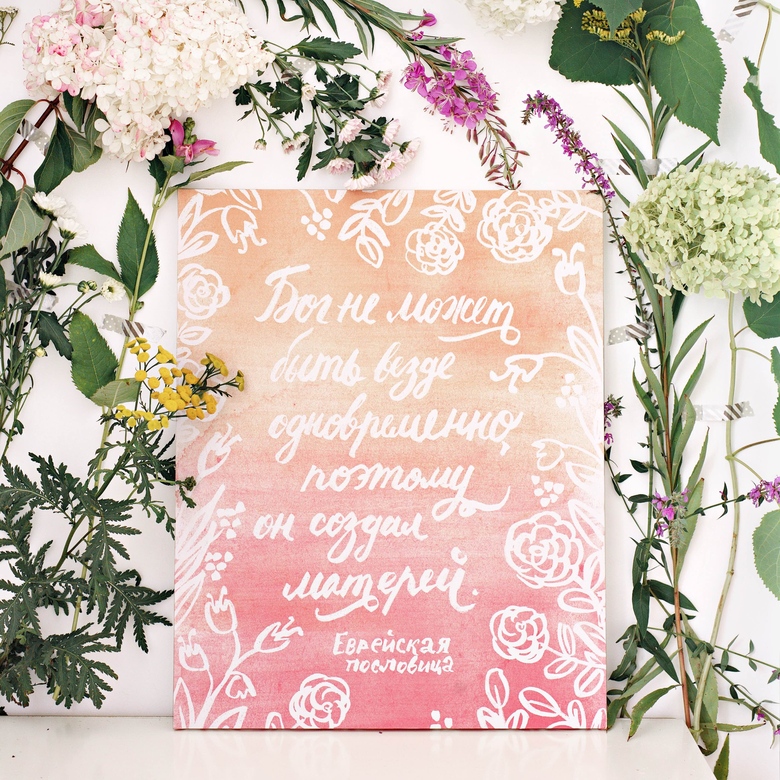 Бог не может
быть везде
одновременно,
поэтому
он создал
матерей.
Еврейская
пословица